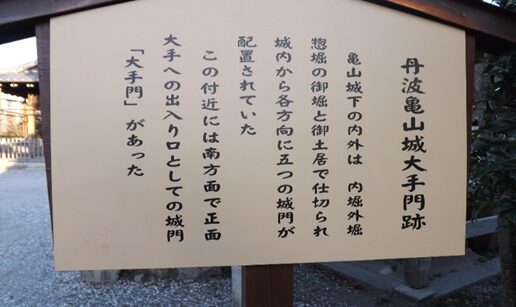 丹波亀山城大手門跡
亀山城下の内外は 内堀外堀
惣堀の御堀と御土居で仕切られ
城内から各方向に五つの城門が
配置されていた
この付近には南方面で正面
大手への出入り口としての城門
「大手門」があった